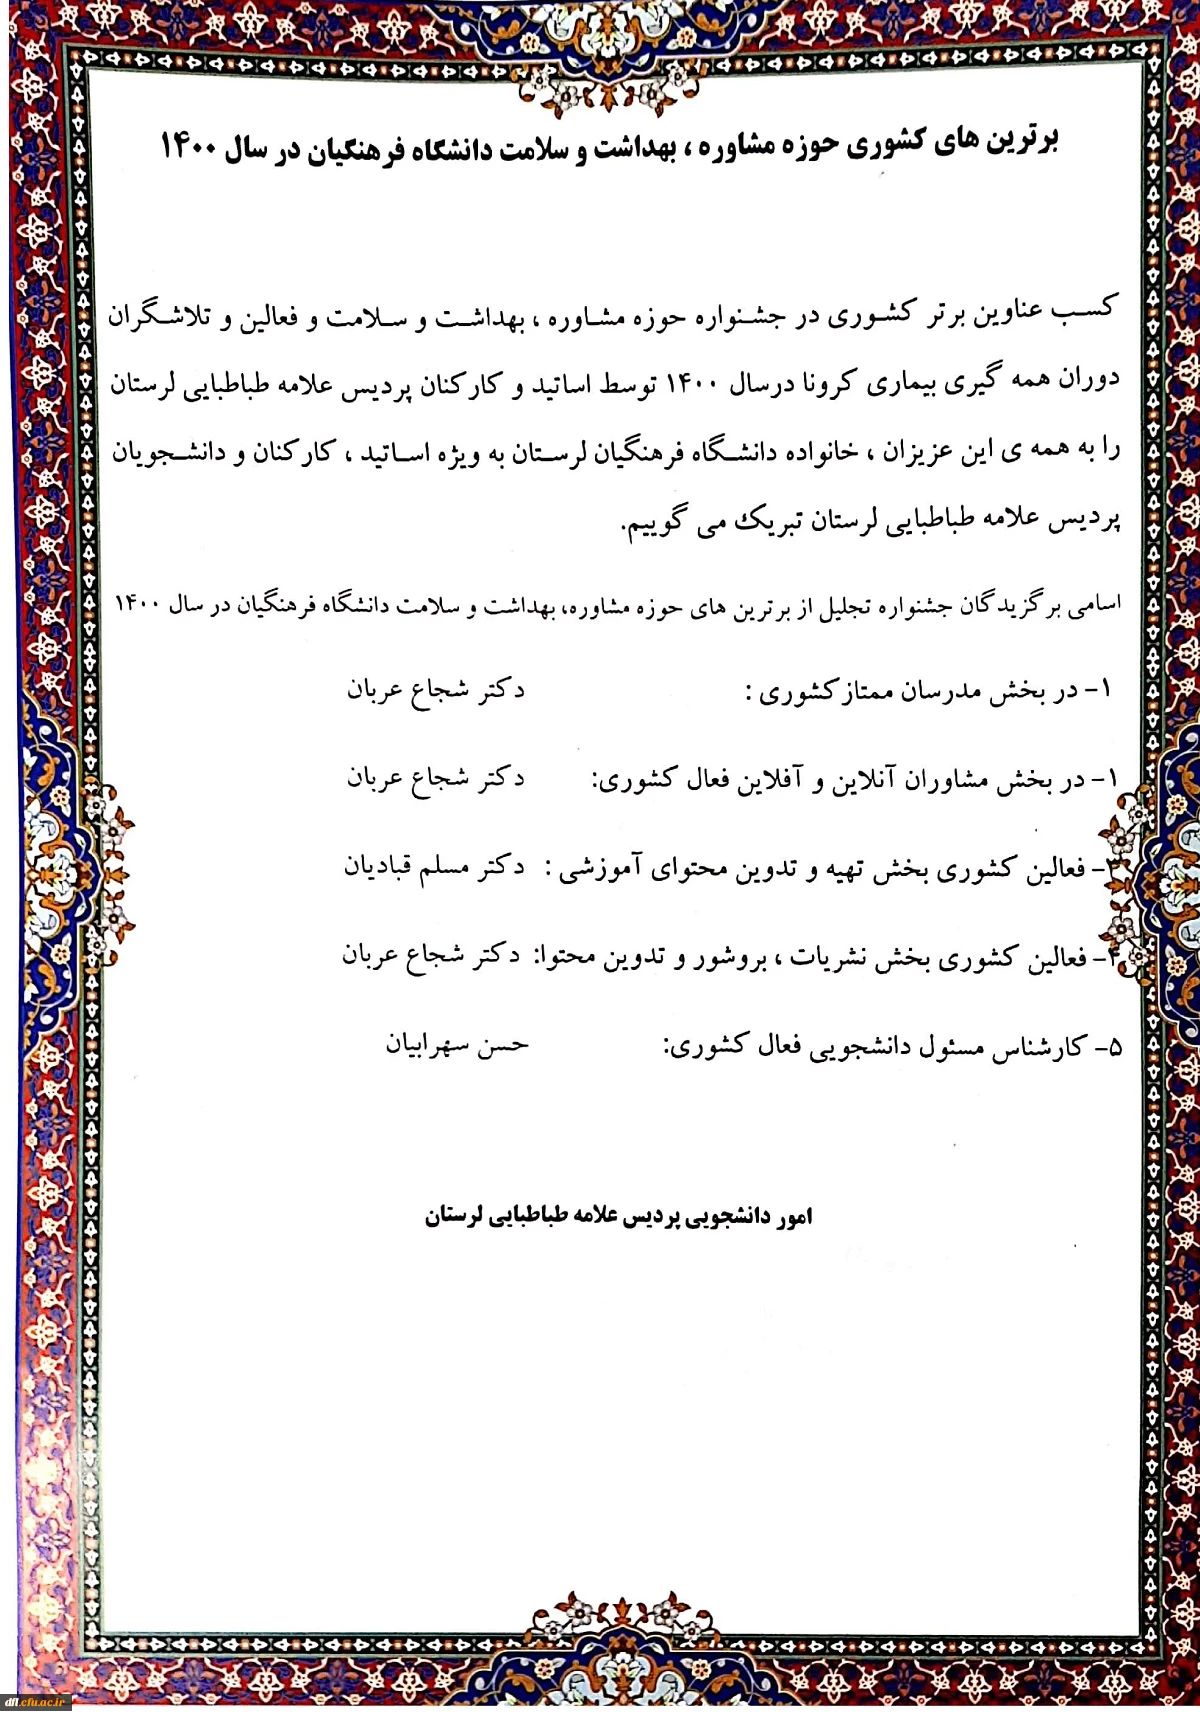 برترین های کشوری حوزه مشاوره ، بهداشت و سلامت دانشگاه فرهنگیان در سال ۱۴۰۰
کسب عناوین برتر کشوری در جشنواره حوزه مشاوره ، بهداشت و سلامت و فعالین و تلاشگران
دوران همه گیری بیماری کرونا درسال ۱۴۰۰ توسط اساتید و کارکنان پردیس علامه طباطبایی لرستان
را به همه ی این عزیزان ، خانواده دانشگاه فرهنگیان لرستان به ویژه اساتید ، کارکنان و دانشجویان
پردیس علامه طباطبایی لرستان تبریک می گوییم.
اسامی برگزیدگان جشنواره تجلیل از برترین های حوزه مشاوره، بهداشت و سلامت دانشگاه فرهنگیان در سال ۱۴۰۰
۱- در بخش مدرسان ممتازکشوری : دکتر شجاع عربان
۱- در بخش مشاوران آنلاین و آفلاین فعال کشوری: دکتر شجاع عربان
۳- فعالین کشوری بخش تهیه و تدوین محتوای آموزشی : دکتر مسلم قبادیان
۴- فعالین کشوری بخش نشریات ، بروشور و تدوین محتوا: دکتر شجاع عربان
۵- کارشناس مسئول دانشجویی فعال کشوری: حسن سهرابیان
امور دانشجویی پردیس علامه طباطبایی لرستان
dfl.cfu.ac.ir